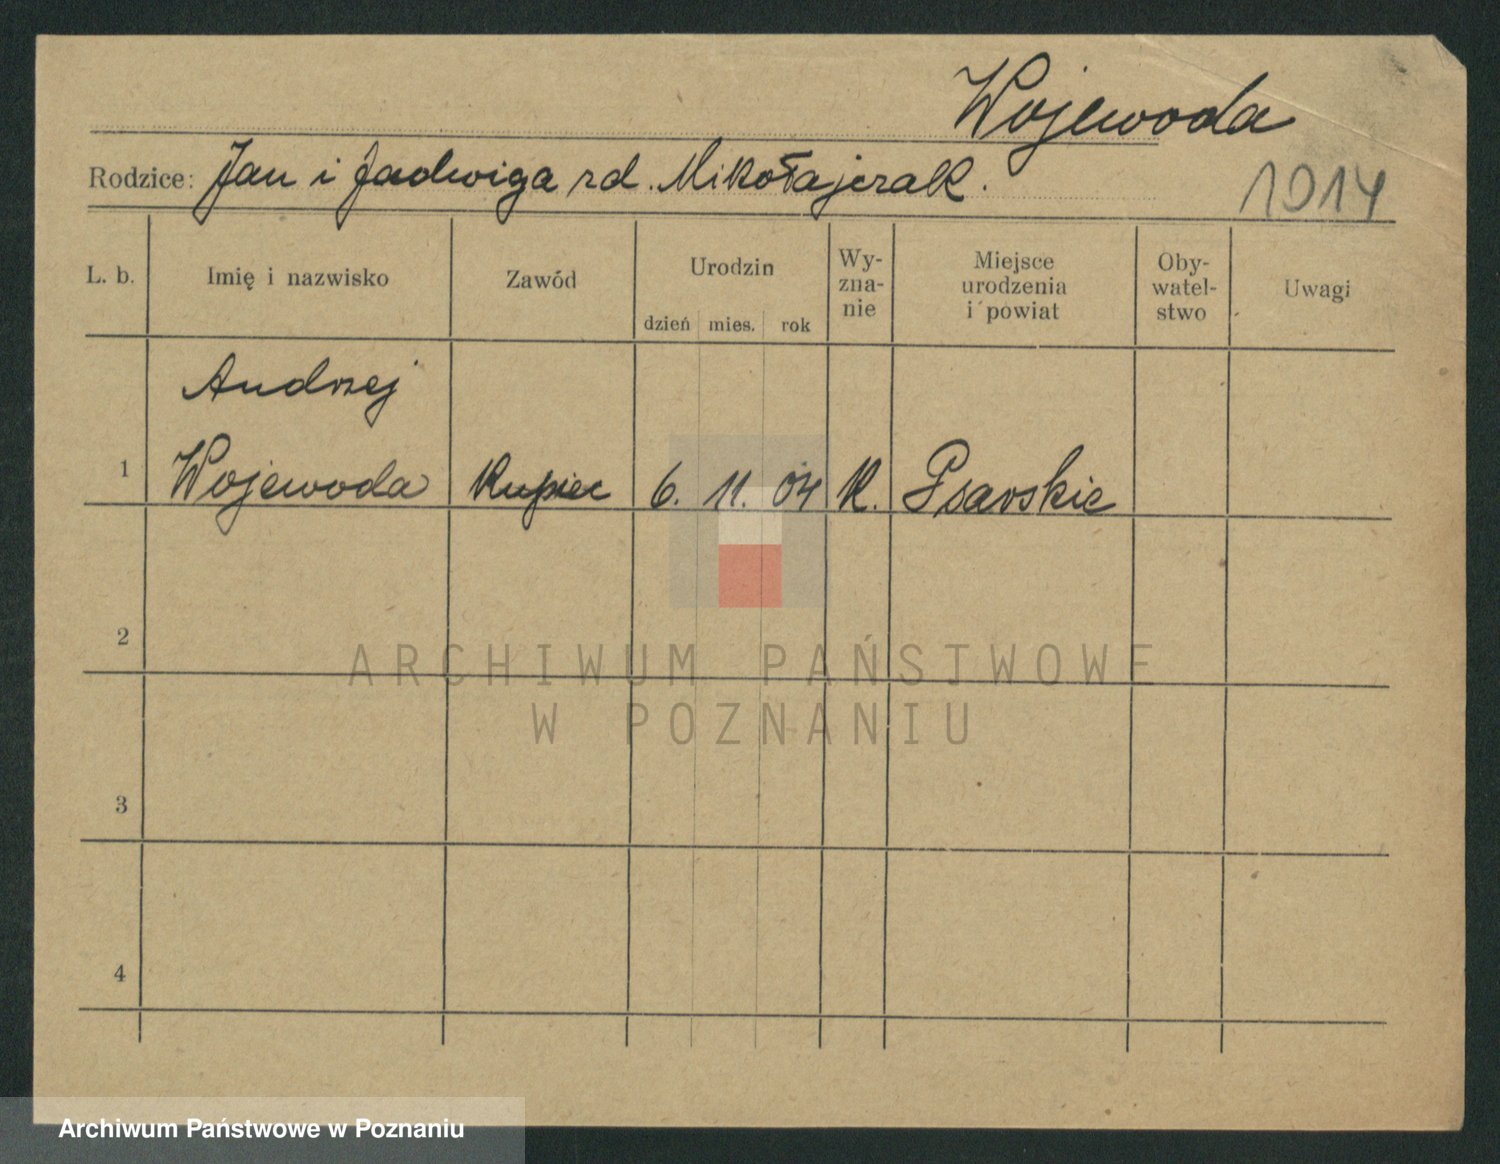 Wojewoda
Rodzice: Jan i Jadwiga rd. Mikołajczak.
1914
L. b.
Imię i nazwisko
Zawód
Urodzin
dzień mies. rok
Wy-
zna-
nie
Miejsce
urodzenia
i powiat
Oby-
watel-
stwo
Uwagi
Andrzej
1 Wojewoda Kupiec 6. 11. 04 K. Psarskie
2
ARCHIWUM PAŃSTWOWE
W POZNANIU
3
4
Archiwum Państwowe w Poznaniu